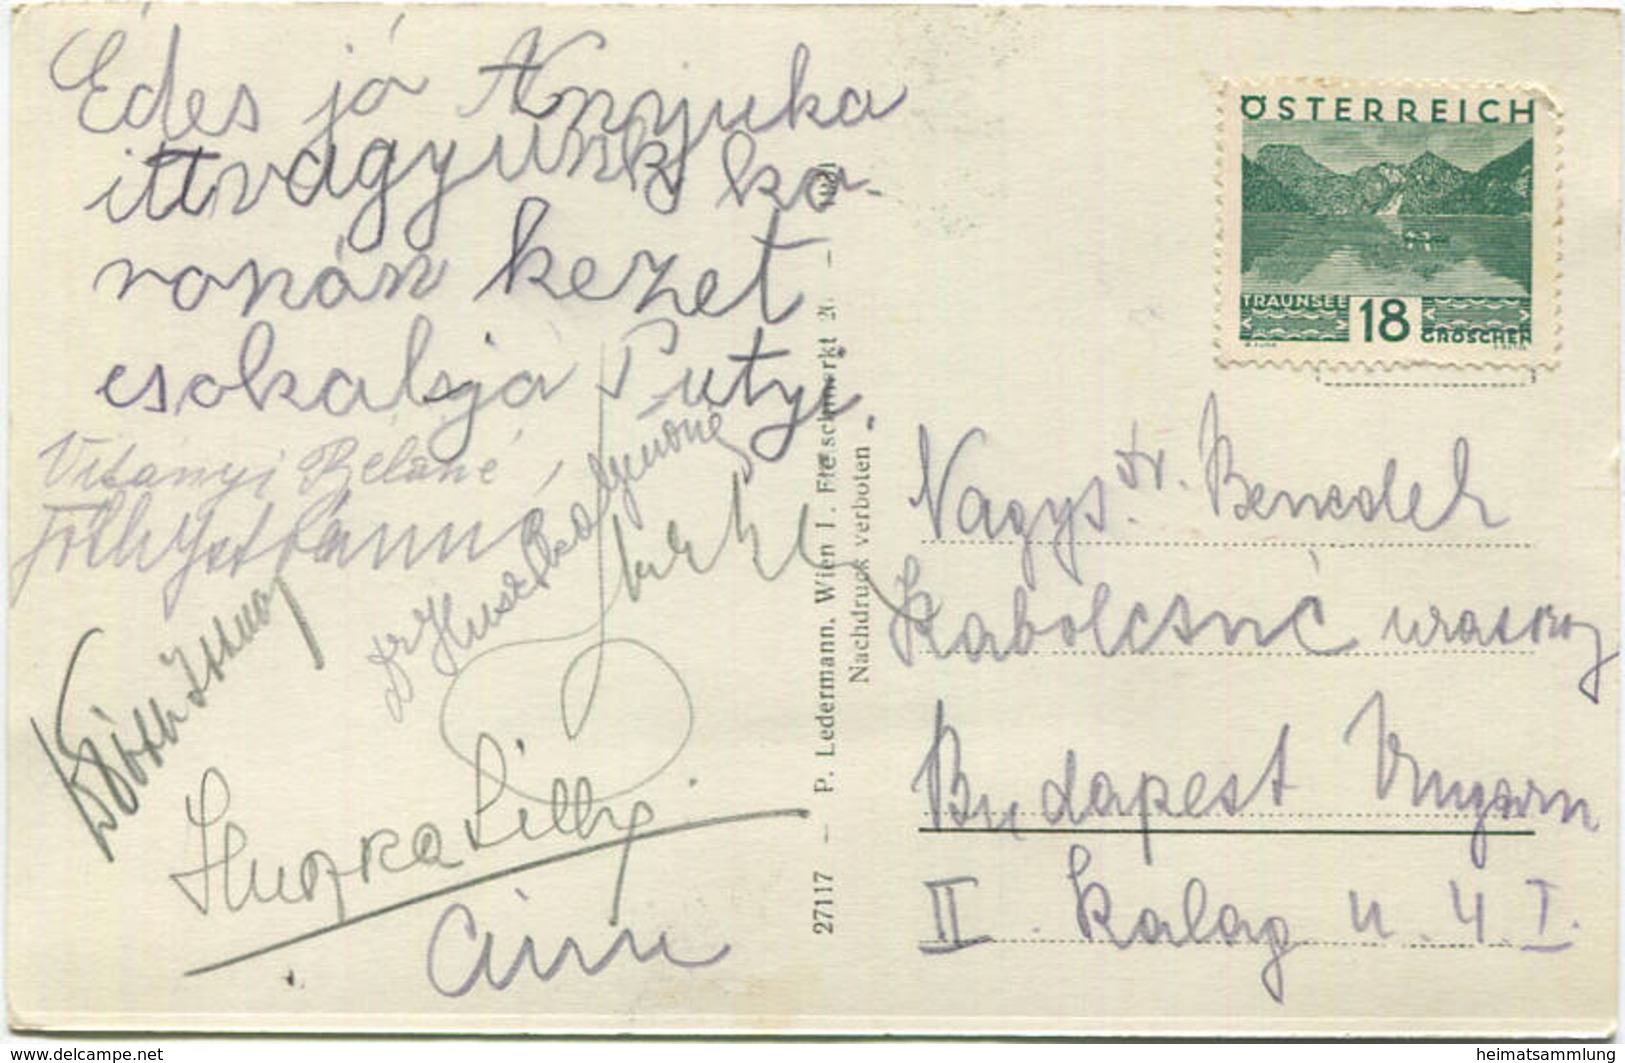 Édes jó Anyjuka
ittvagyunk ko-
ronán kezet
csokalsjá Putyi.
Vitányi Béláné,
Tóth István
Huszka Lilly
Cinu
27117 – P. Ledermann, Wien I. Fleischmarkt 20 – 1931
Nachdruck verboten
ÖSTERREICH
TRAUNSEE
18
GROSCHEN
Nagys. dr. Benedek
Szabolcsné urasszony
Budapest Ungarn
II Kalag u. 4 I.
www.delcampe.net
heimatsammlung